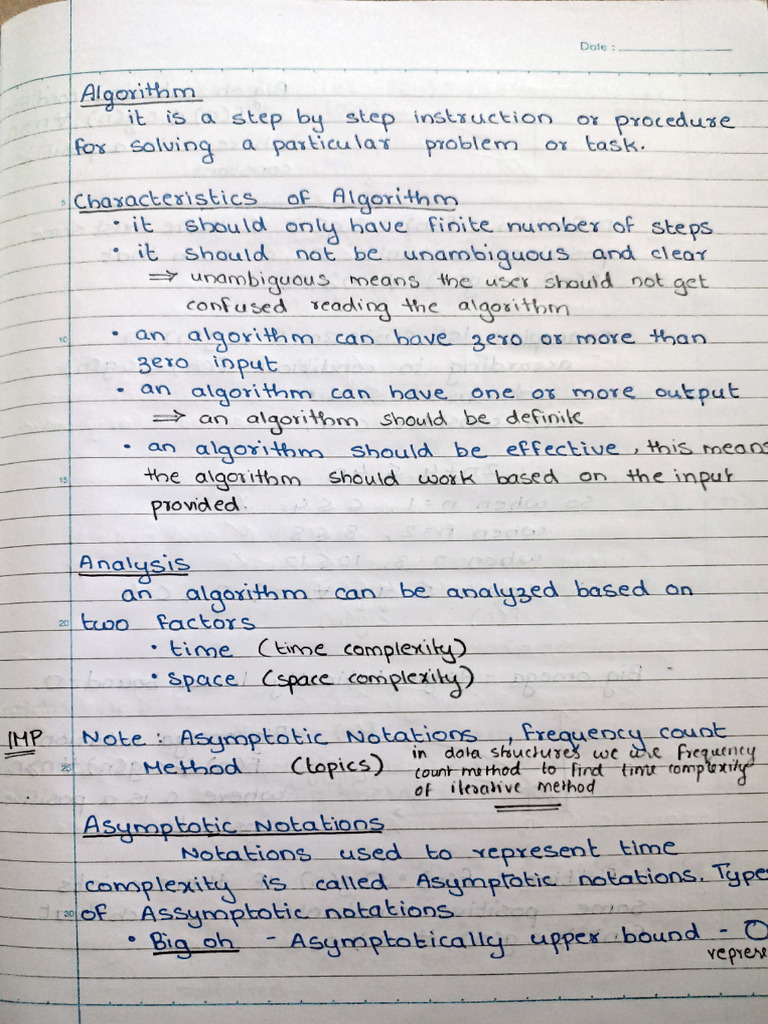 Date :
Algorithm
it is a step by step instruction or procedure
for solving a particular problem or task.
5 Characteristics of Algorithm
• it should only have finite number of steps
• it should not be unambiguous and clear
⇒ unambiguous means the user should not get
confused reading the algorithm
10 • an algorithm can have zero or more than
zero input
• an algorithm can have one or more output
⇒ an algorithm should be definite
• an algorithm should be effective, this means
15 the algorithm should work based on the input
provided.
Analysis
an algorithm can be analyzed based on
20 two factors
• time (time complexity)
• space (space complexity)
IMP Note : Asymptotic Notations, frequency count
25 Method (topics)
in data structures we use frequency
count method to find time complexity
of iterative method
Asymptotic Notations
Notations used to represent time
complexity is called Asymptotic notations. Type
30 of Assymptotic notations
• Big oh - Asymptotically upper bound - O
represe